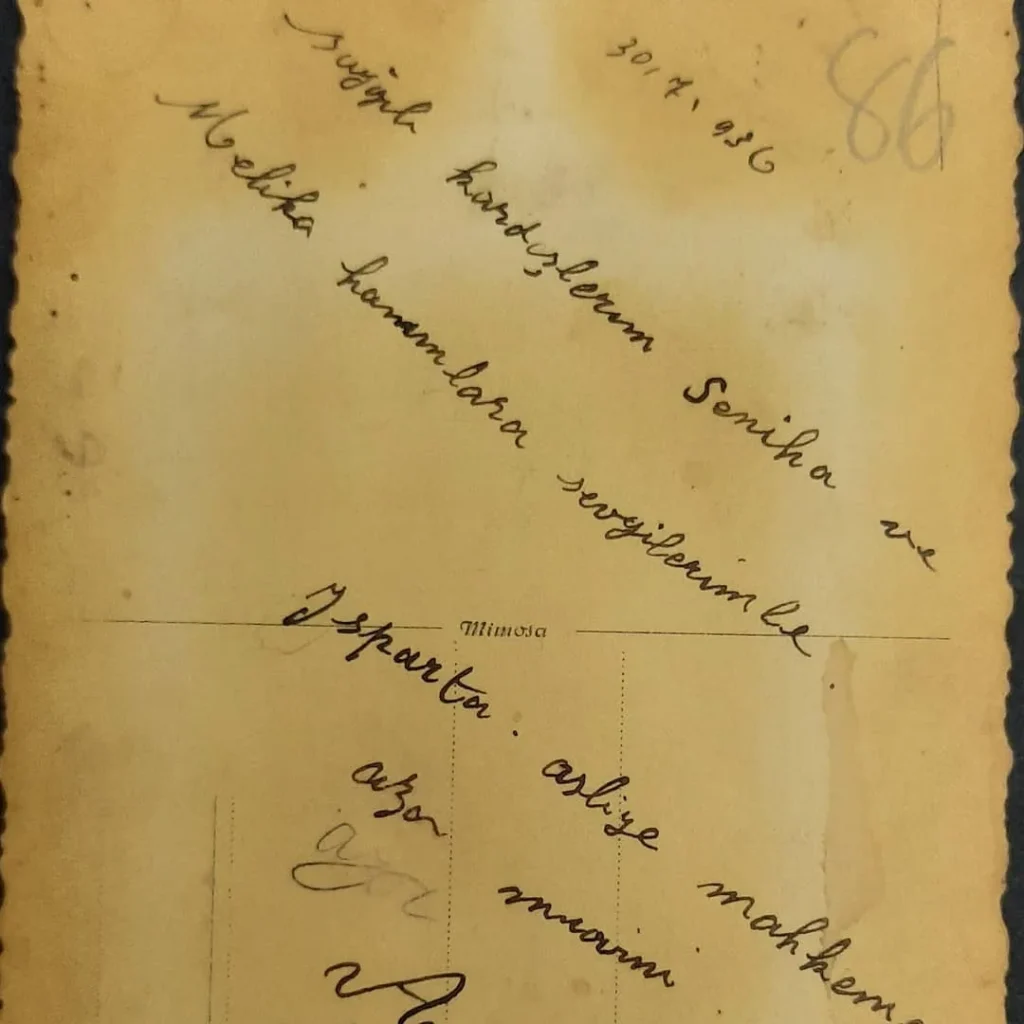 30.7.936
86
Sevgili kardeşlerim Seniha ve
Meliha hanımlara sevgilerimle
Mimosa
Isparta. asliye mahkeme
aza muavini